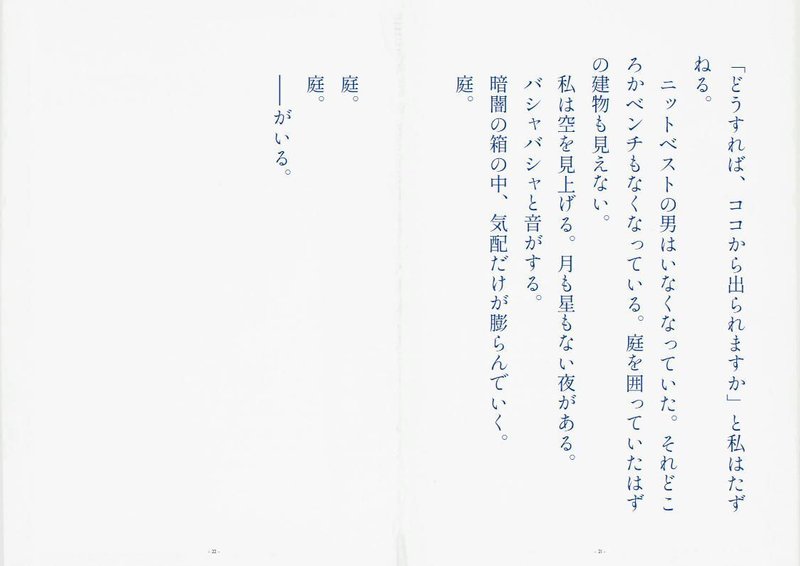 「どうすれば、ココから出られますか」と私はたず
ねる。
ニットベストの男はいなくなっていた。それどこ
ろかベンチもなくなっている。庭を囲っていたはず
の建物も見えない。
私は空を見上げる。月も星もない夜がある。
バシャバシャと音がする。
暗闇の箱の中、気配だけが膨らんでいく。
庭。
- 21 -
庭。
庭。
――がいる。
- 22 -